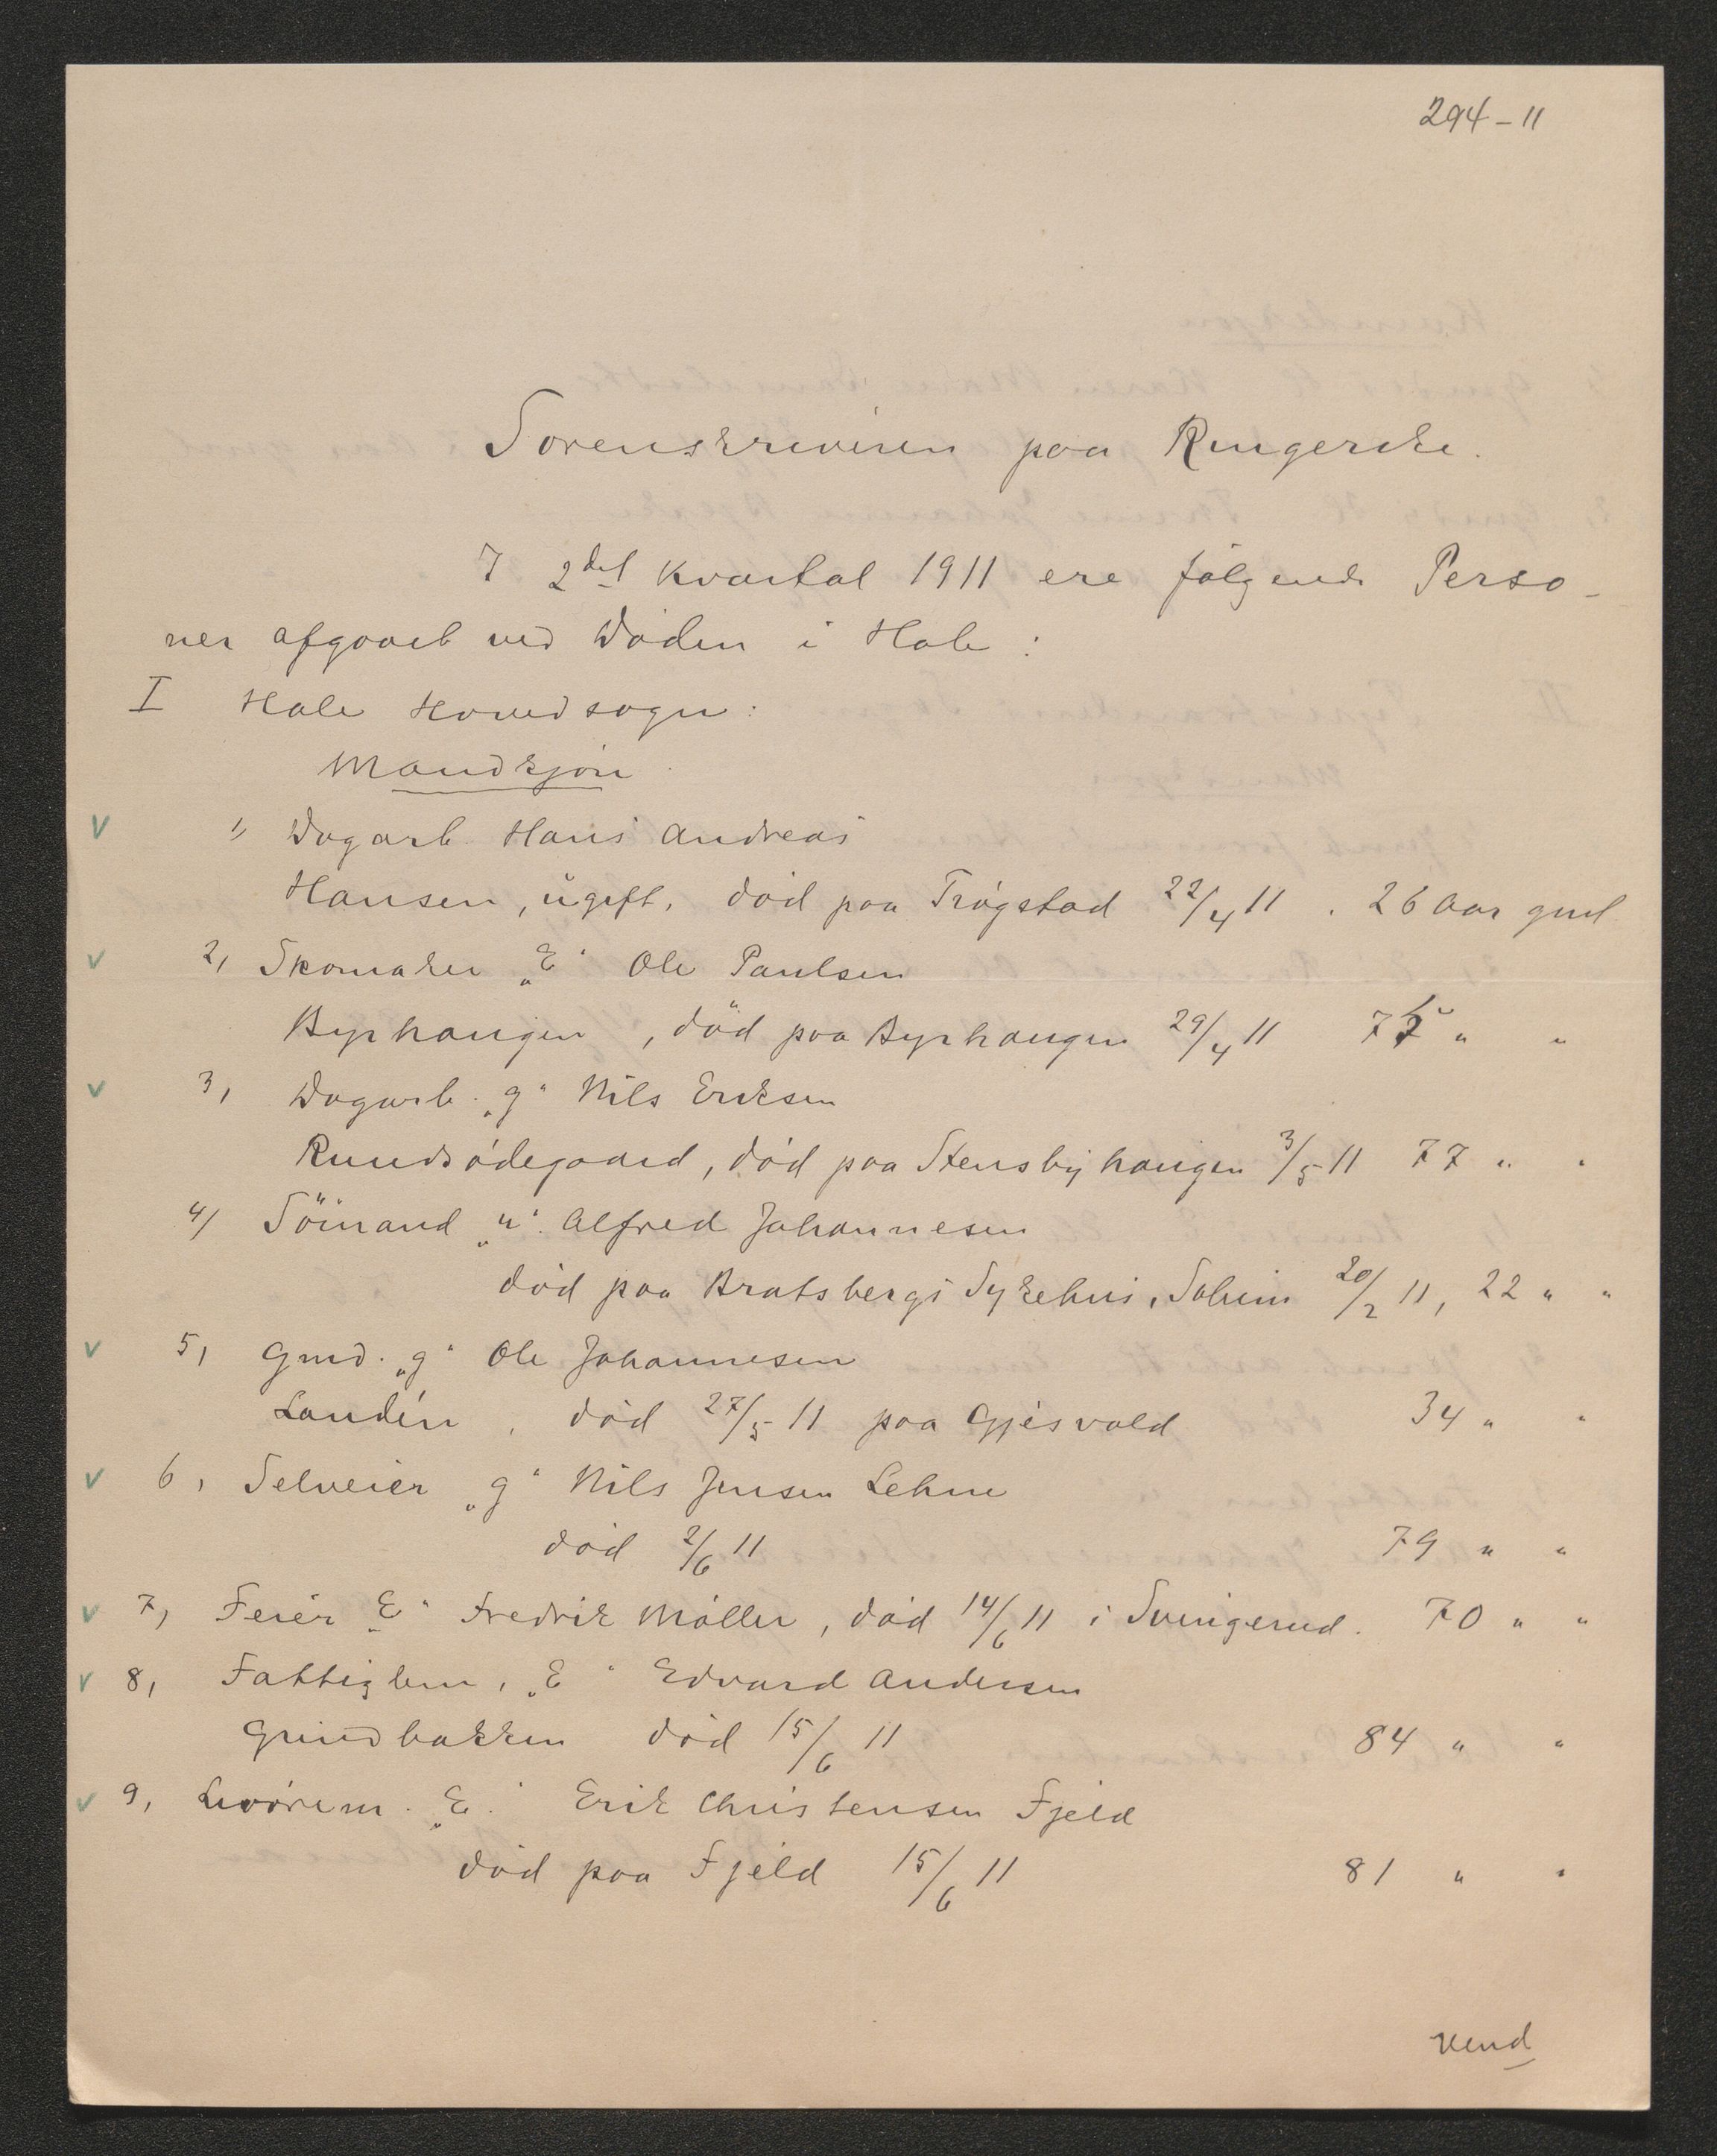 294-11
Sorenskriveren paa Ringerike.
I 2det Kvartal 1911 ere følgende Perso-
ner afgaaet ved Døden i Hole:
I Hole Hovedsogn:
Mandkjøn
V 1, Dagarb. Hans Andreas
Hansen, ugift, død paa Trøgstad 22/4 11. 26 Aar gml
V 2, Skomaker „E" Ole Paulsen
Byrhaugen, død paa Byrhaugen 29/4 11 75 " "
V 3, Dagarb. „g" Nils Eriksen
Rundsødegaard, død paa Stensbyhaugen 3/5 11 77 " "
4/ Sömand „u" Alfred Johannesen
død paa Bratsbergs Sykehus, Solum 20/2 11, 22 " "
V 5, Gmd. „g" Ole Johannesen
Landén, død 27/5 11 paa Gjesvold 34 " "
V 6, Selveier „g" Nils Jensen Lehne
død 2/6 11 79 " "
V 7, Feier „E" Fredrik Møller, død 14/6 11 i Svingerud. 70 " "
V 8, Fattiglem, „E" Edvard Andersen
Grindbakken død 15/6 11 84 " "
V 9, „E" Erik Christensen Fjeld
død paa Fjeld 15/6 11 81 " "
Vend